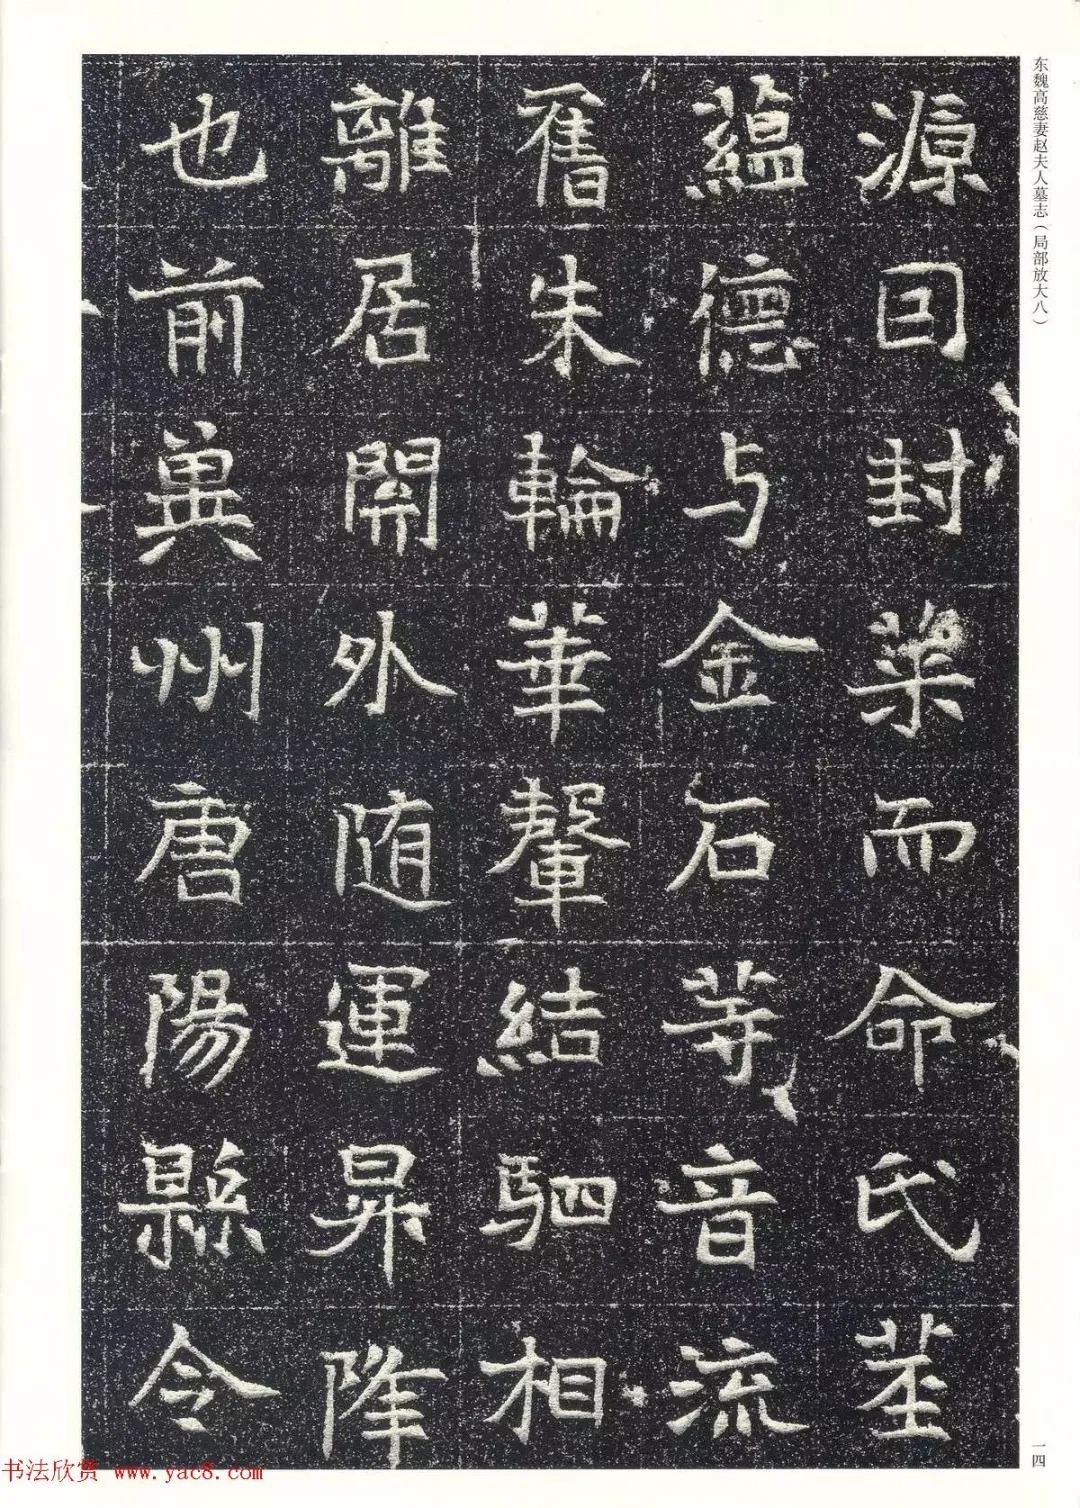 东魏高慈妻赵夫人墓志（局部放大八）
源回封菜而命氏荃
蕴德与金石等音流
舊朱輪華輦結駟相
離居開外随運昇降
也前冀州唐陽縣令
一四
书法欣赏 www.yac8.com